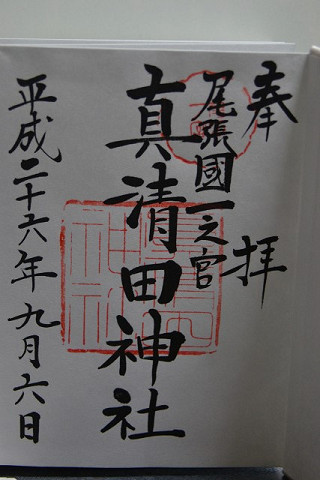 奉拝
尾張國一之宮
真清田神社
平成二十六年九月六日